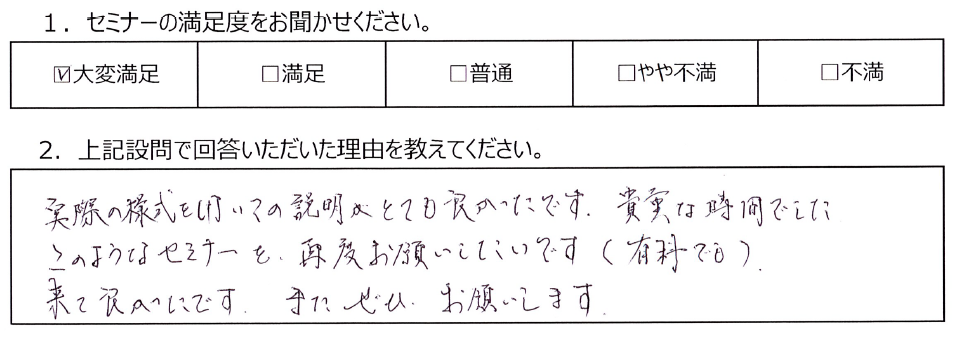 1. セミナーの満足度をお聞かせください。
☑大変満足 □満足 □普通 □やや不満 □不満
2. 上記設問で回答いただいた理由を教えてください。
実際の様式を用いての説明がとても良かったです. 貴重な時間でした
このようなセミナーを、再度お願いしたいです(有料でも).
来て良かったです. またぜひ、お願いします